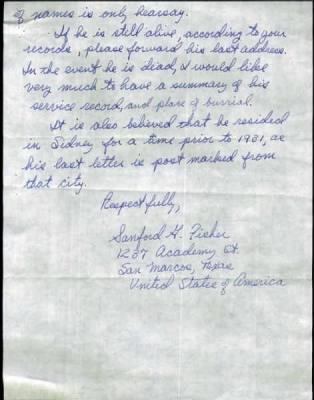 of names is only hearsay.
If he is still alive, according to your
records, please forward his last address.
In the event he is diad, I would like
very much to have a summary of his
service record, and place of burrial.
It is also believed that he resided
in Sidney for a time prior to 1931, as
his last letter is post marked from
that city.
Respectfully,
Sanford G. Fisher
1237 Academy St.
San Marcos, Texas
United States of America